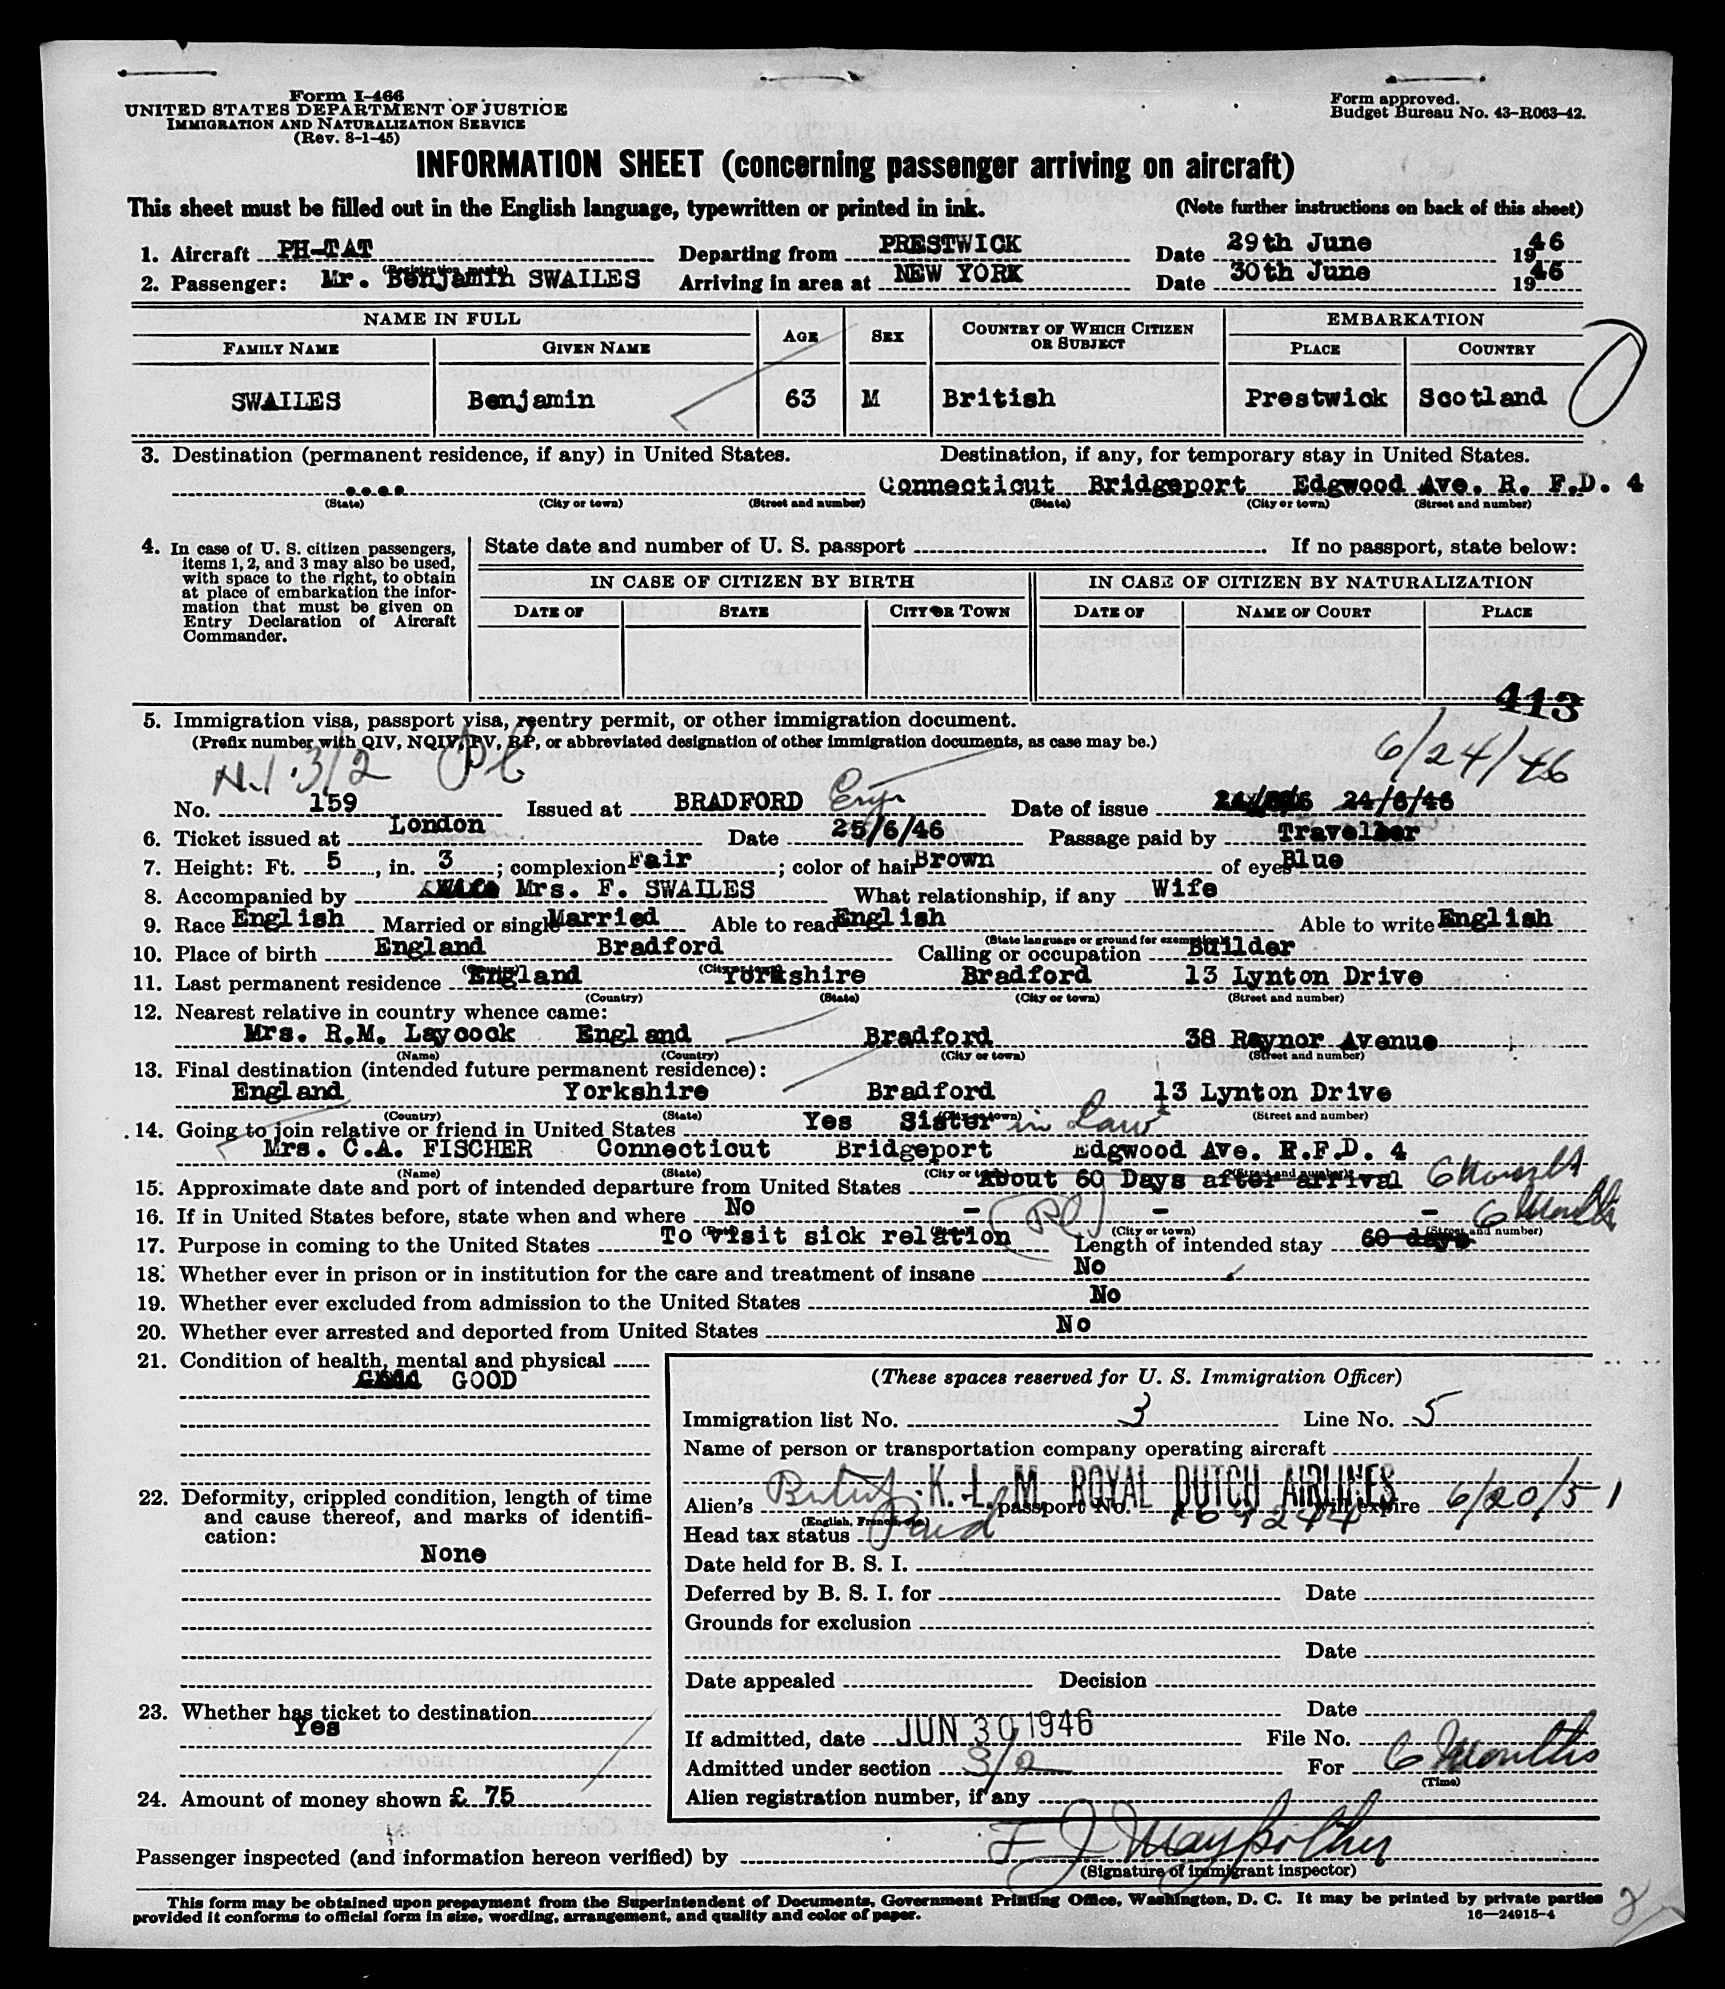 Form I-466
UNITED STATES DEPARTMENT OF JUSTICE
IMMIGRATION AND NATURALIZATION SERVICE
(Rev. 8-1-45)
Form approved.
Budget Bureau No. 43-R063-42.
INFORMATION SHEET (concerning passenger arriving on aircraft)
This sheet must be filled out in the English language, typewritten or printed in ink. (Note further instructions on back of this sheet)
1. Aircraft PH-TAT Departing from PRESTWICK Date 29th June 1946
(Registration marks)
2. Passenger: Mr. Benjamin SWAILES Arriving in area at NEW YORK Date 30th June 1946
NAME IN FULL AGE SEX COUNTRY OF WHICH CITIZEN OR SUBJECT EMBARKATION
FAMILY NAME GIVEN NAME PLACE COUNTRY
SWAILES Benjamin 63 M British Prestwick Scotland
3. Destination (permanent residence, if any) in United States. Destination, if any, for temporary stay in United States.
.... Connecticut Bridgeport Edgwood Ave. R. F.D. 4
(State) (City or town) (Street and number) (State) (City or town) (Street and number)
4. In case of U. S. citizen passengers, items 1, 2, and 3 may also be used, with space to the right, to obtain at place of embarkation the information that must be given on Entry Declaration of Aircraft Commander.
State date and number of U. S. passport If no passport, state below:
IN CASE OF CITIZEN BY BIRTH IN CASE OF CITIZEN BY NATURALIZATION
DATE OF STATE CITY OR TOWN DATE OF NAME OF COURT PLACE
413
5. Immigration visa, passport visa, reentry permit, or other immigration document.
(Prefix number with QIV, NQIV, PV, RP, or abbreviated designation of other immigration documents, as case may be.)
3/2 6/24/46
No. 159 Issued at BRADFORD Eng Date of issue 24/6/46
6. Ticket issued at London Date 25/6/46 Passage paid by Traveller
7. Height: Ft. 5, in. 3; complexion Fair; color of hair Brown of eyes Blue
8. Accompanied by Mrs. F. SWAILES What relationship, if any Wife
9. Race English Married or single Married Able to read English Able to write English
(State language or ground for exemption)
10. Place of birth England Bradford Calling or occupation Builder
(Country) (City or town)
11. Last permanent residence England Yorkshire Bradford 13 Lynton Drive
(Country) (State) (City or town) (Street and number)
12. Nearest relative in country whence came:
Mrs. R.M. Laycock England Bradford 38 Raynor Avenue
(Name) (Country) (City or town) (Street and number)
13. Final destination (intended future permanent residence):
England Yorkshire Bradford 13 Lynton Drive
(Country) (State) (City or town) (Street and number)
14. Going to join relative or friend in United States Yes Sister in law
Mrs. C.A. FISCHER Connecticut Bridgeport Edgwood Ave. R.F.D. 4
(Name) (State) (City or town) (Street and number)
15. Approximate date and port of intended departure from United States About 60 Days after arrival 6 Months
16. If in United States before, state when and where No - - - 6 Months
(State) (City or town) (Street and number)
17. Purpose in coming to the United States To visit sick relation Length of intended stay 60 days
18. Whether ever in prison or in institution for the care and treatment of insane No
19. Whether ever excluded from admission to the United States No
20. Whether ever arrested and deported from United States No
21. Condition of health, mental and physical
GOOD
22. Deformity, crippled condition, length of time and cause thereof, and marks of identification:
None
23. Whether has ticket to destination
Yes
24. Amount of money shown £ 75
(These spaces reserved for U. S. Immigration Officer)
Immigration list No. 3 Line No. 5
Name of person or transportation company operating aircraft
K. L. M. ROYAL DUTCH AIRLINES
Alien's British passport No. will expire 6/20/51
(English, French, etc.)
Head tax status Paid
Date held for B. S. I.
Deferred by B. S. I. for Date
Grounds for exclusion
Date
Date appealed Decision
Date
If admitted, date JUN 30 1946 File No.
Admitted under section 3/2 For 6 Months
(Time)
Alien registration number, if any
Passenger inspected (and information hereon verified) by
(Signature of immigrant inspector)
This form may be obtained upon prepayment from the Superintendent of Documents, Government Printing Office, Washington, D. C. It may be printed by private parties
provided it conforms to official form in size, wording, arrangement, and quality and color of paper. 16—24915-4